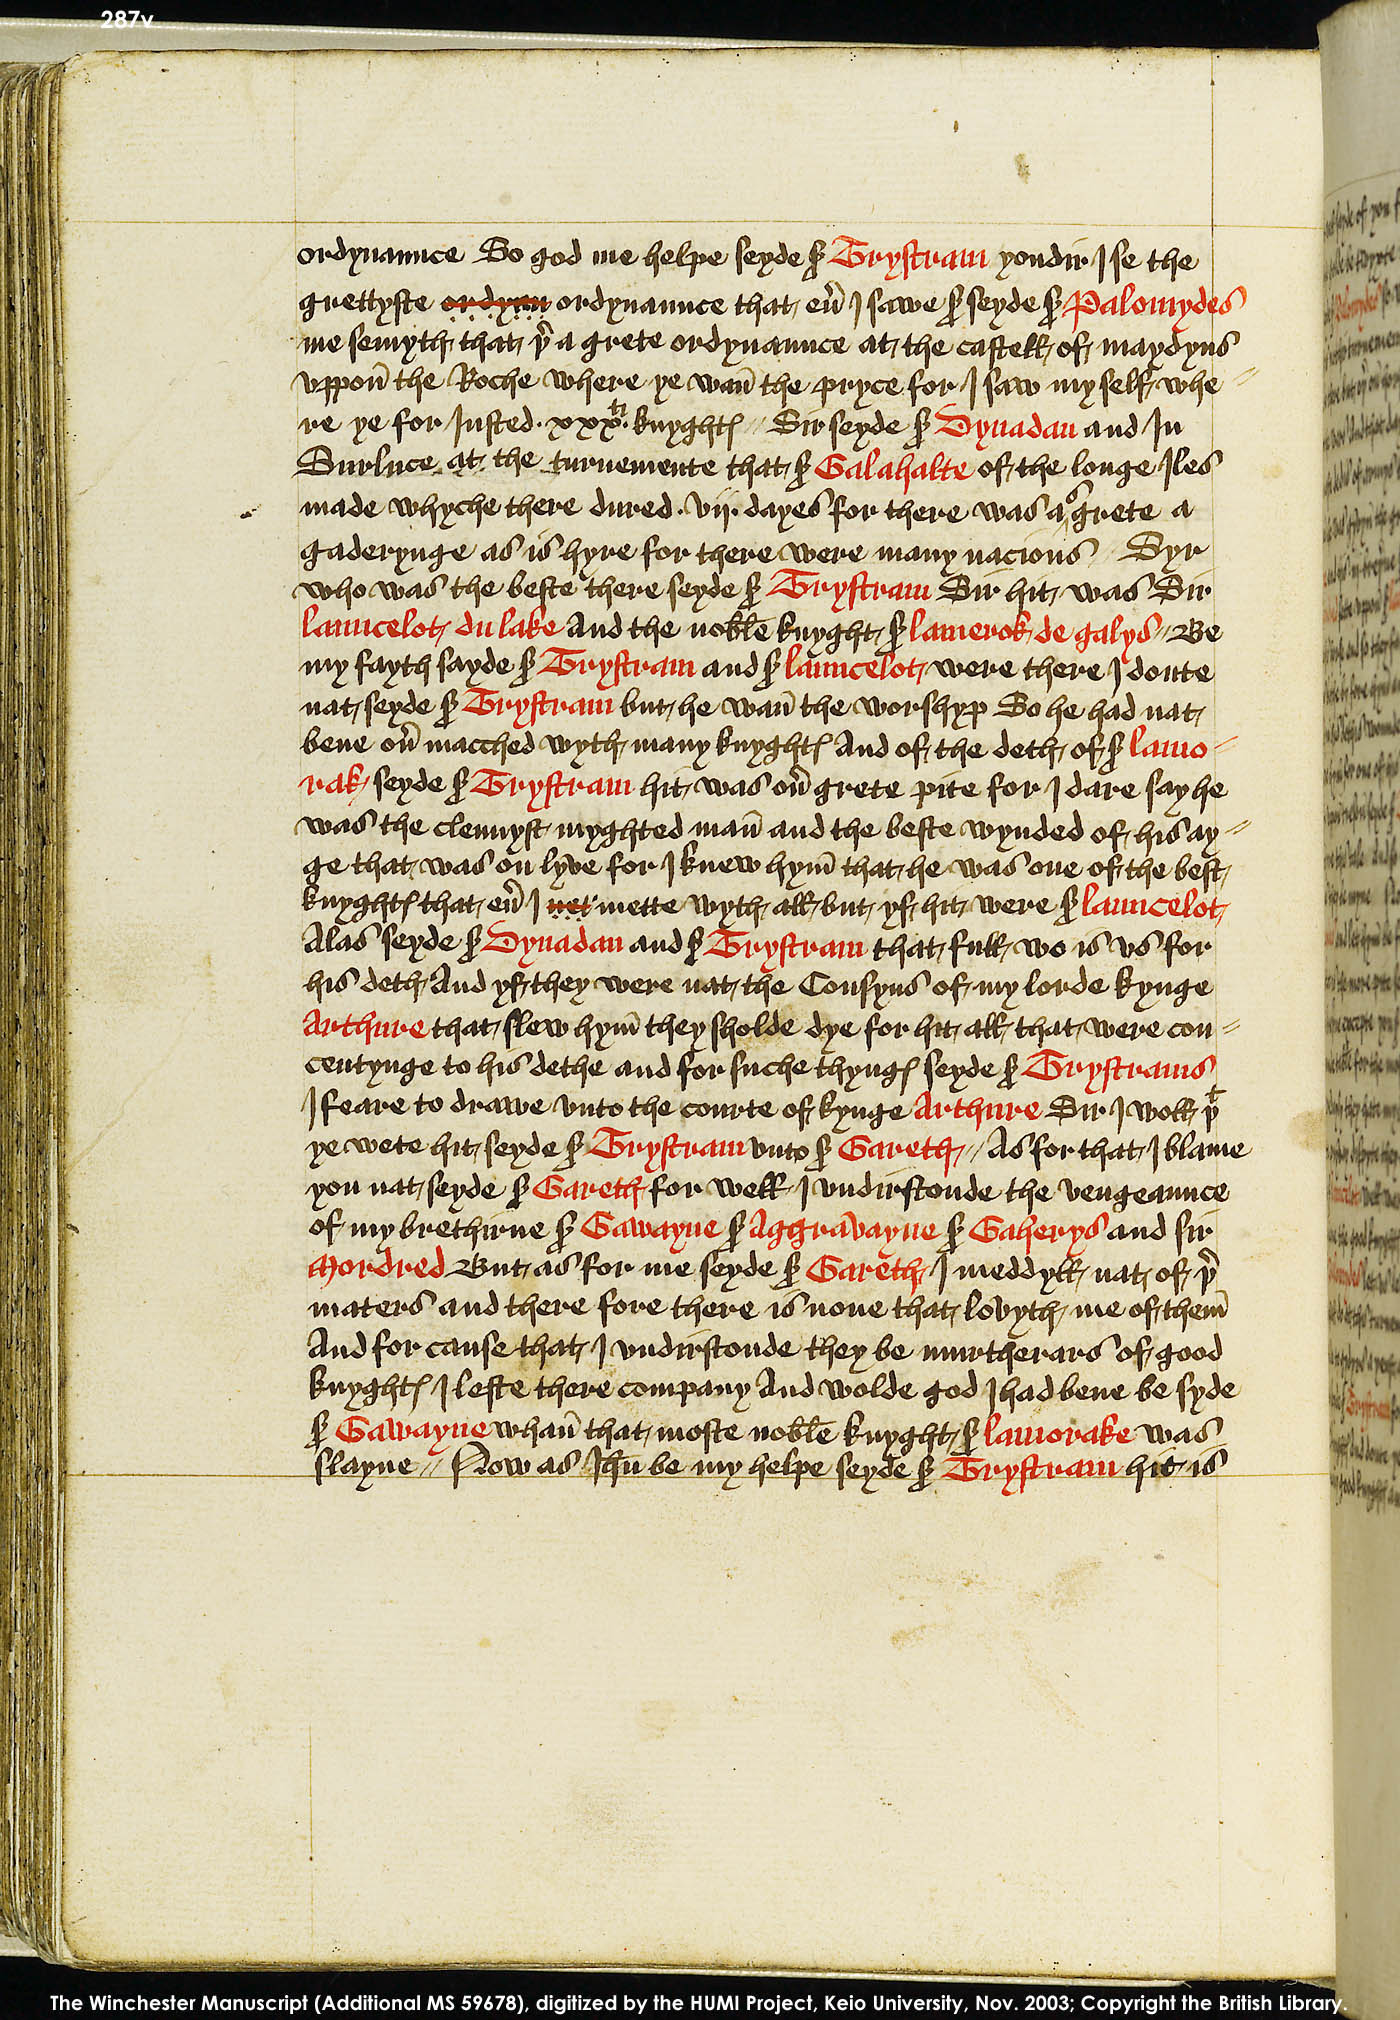 287v
ordynaunce So god me helpe seyde sꝰ Trystram yondir I se the
grettyste ordynn ordynaunce that eũ I sawe sꝰ seyde sꝰ Palomydes
me semyth that þͬ a grete ordynaunce at the castell of maydyns
vppoñ the Roche where ye wañ the pryce for I saw my self whe〃
re ye for Iusted .xxxᵗⁱ. knyghtꝭ // Sir seyde sꝰ Dynadan and In
Surluce at the turnemente that sꝰ Galahalte of the longe Iles
made whyche there dured .vij. dayes for there was aˢ grete a
gaderynge as is hyre for there were many nacions // Syr
who was the beste there seyde sꝰ Trystram Sir hit was Sir
launcelot du lake And the noble knyght sꝰ lamerok de galys // Be
my fayth sayde sꝰ Trystram and sꝰ launcelot were there I doute
nat seyde sꝰ Trystram but he wañ the worshyp So he had nat
bene oũ macched wyth many knyghtꝭ And of the deth of sꝰ lamo〃
rak seyde sꝰ Trystram hit was oũ grete pite for I dare say he
was the clennyst myghted mañ and the beste wynded of his ay〃
ge that was on lyve for I knew hym̄ that he was one of the best
knyghtꝭ that eũ I net mette wyth all but yf hit were sꝰ launcelot
Alas seyde sꝰ Dynadan and sꝰ Trystram that full wo is vs for
his deth And yf they were nat the Cousyns of my lorde kynge
Arthure that slew hym̄ they sholde dye for hit all that were con〃
centynge to his dethe and for suche thyngꝭ seyde sꝰ Trystrams
I feare to drawe vnto the courte of kynge Arthure Sir I woll þᵗ
ye wete hit seyde sꝰ Trystram vnto sꝰ Gareth // As for that I blame
you nat seyde sꝰ Gareth for well I vndirstonde the vengeaunce
of my brethirne sꝰ Gawayne sꝰ Aggravayne sꝰ Gaherys and sir
Mordred But as for me seyde sꝰ Gareth I meddyll nat of þͬ
maters and there fore there is none that lovyth me of them̄
And for cause that I vndirstonde they be murtherars of good
knyghtꝭ I lefte there company And wolde god I had bene be syde
sꝰ Gawayne whañ that moste noble knyght sꝰ lamorake was
slayne // Now as Ihū be my helpe seyde sꝰ Trystram hit is
The Winchester Manuscript (Additional MS 59678), digitized by the HUMI Project, Keio University, Nov. 2003; Copyright the British Library.